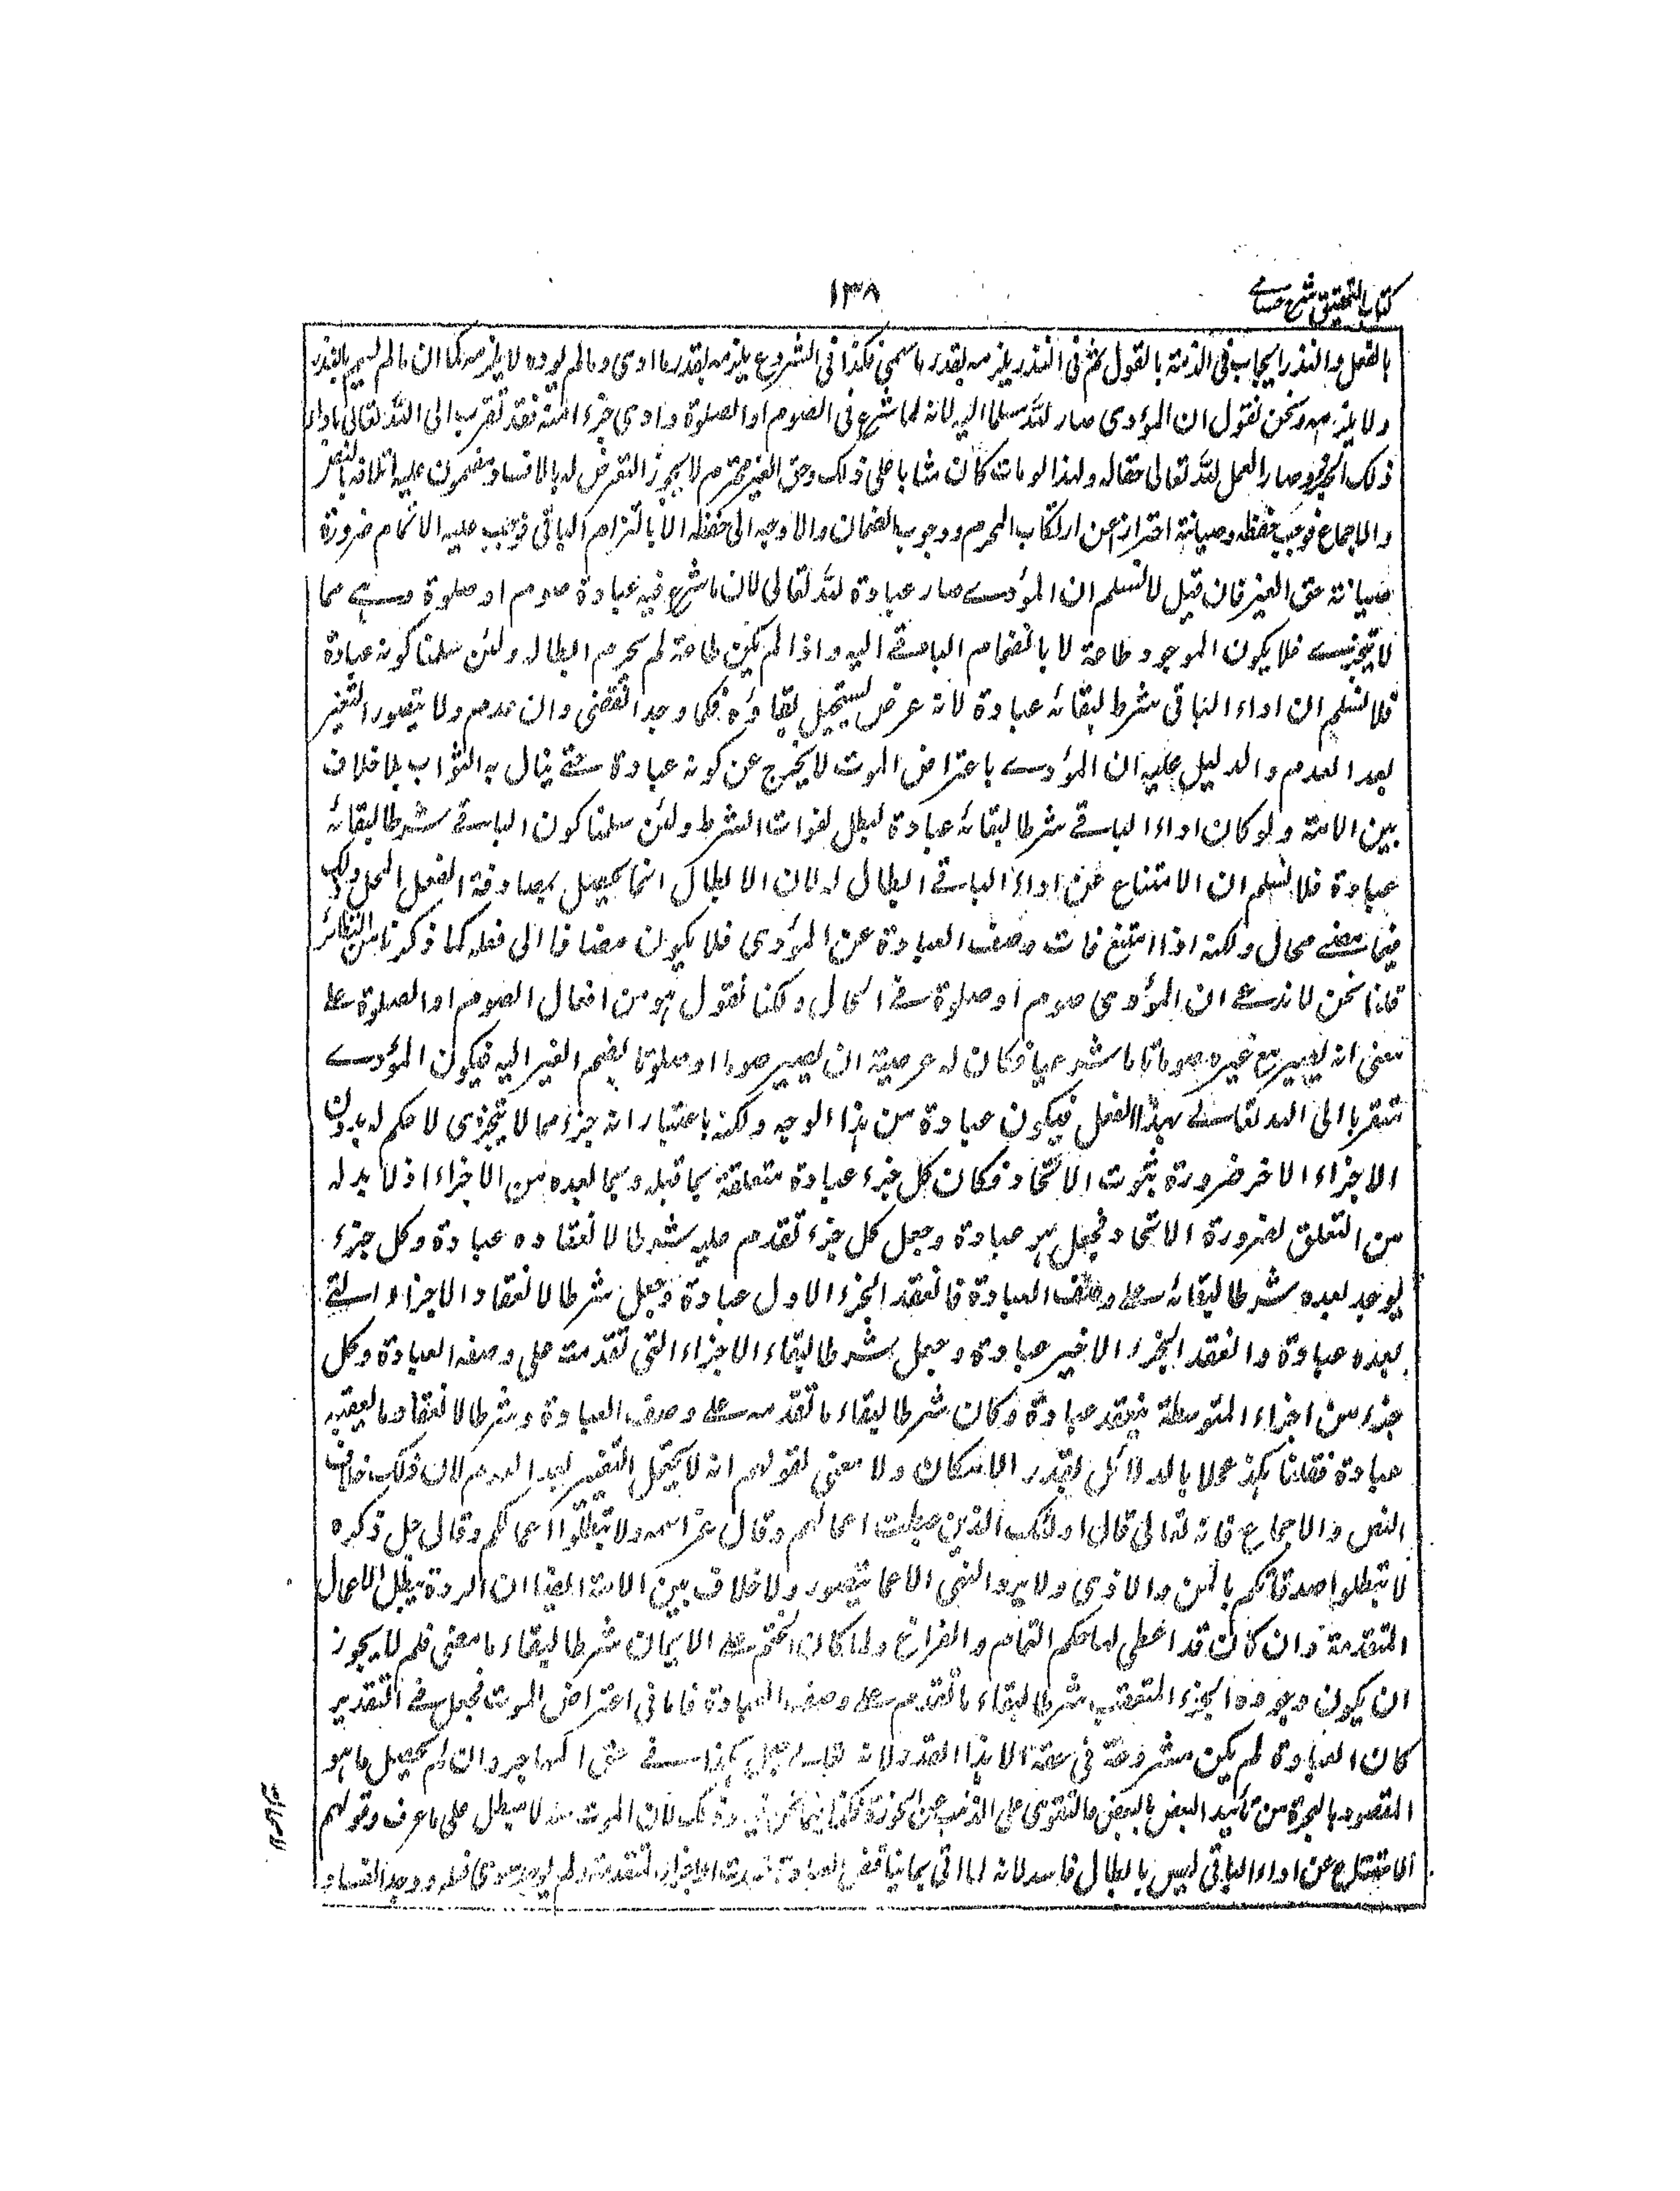 كتاب التحقيق شرح حسامے
١٣٨
بالفعل والنذر ايجاب فى الذمة بالقول ثم فى النذر يلزمه بقدر ما سمى فكذا فى الشروع يلزمه بقدر ما ادى وما لم يوده لا يلزمه كما ان ما لم يسم بالنذر
ولا يلزمه ونحن نقول ان المؤدى صار لله مسلما اليه لانه لما شرع فى الصوم او الصلوة وادى جزء امنه فقد تقرب الى الله تعالى باداء
ذلك الجزء وصار العمل لله تعالى حقاله ولهذا لو مات كان مثابا على ذلك وحق الغير محترم لا يجوز التعرض له بالافساد ومضمون عليه اتلافه بالنص
والاجماع فوجب حفظه وصيانة احترازا عن ارتكاب المحرم ووجوب الضمان والا وجه الى حفظه الا بالتزام الباقى فوجب عليه الاتمام ضرورة
صيانة حق الغير فان قيل لا نسلم ان المؤدے صار عبادة لله تعالى لان ما شرع فيه عبادة صوم او صلوة وہے مما
لا يتجزے فلا يكون الموجود طاعة لا بانضمام الباقے اليه واذا لم يكن طاعة لم يحرم ابطاله ولئن سلمنا كونه عبادة
فلا نسلم ان اداء الباقى شرط لبقائه عبادة لانه عرض يستحيل بقاؤه فكما وجد انقضى وان عدم ولا يتصور التغير
بعد العدم والدليل عليه ان المؤدے باعتراض الموت لا يخرج عن كونه عبادة حتے ينال به الثواب بلا خلاف
بين الامة ولو كان اداء الباقے شرطا لبقائه عبادة لبطل لفوات الشرط ولئن سلمنا كون الباقے شرطا لبقائه
عبادة فلا نسلم ان الامتناع عن اداء الباقے ابطال له لان الابطال انما يحصل بمصادفة الفعل المحل وذلك
فيما مضے محال ولكنه اذا امتنع فات وصف العبادة عن المؤدى فلا يكون مضافا الى فعله كما ذكرنا من النظائر
قلنا نحن لا ندعے ان المؤدى صوم او صلوة فے الحال ولكنا نقول هو من افعال الصوم او الصلوة علے
معنى انه يصير مع غيره صوما تاما شرعيا فكان له عرضية ان يصير صوما او صلوتا بضم الغير اليه فيكون المؤدے
متقربا الى الله تعالے بهذا الفعل فيكون عبادة من هذا الوجه ولكنه باعتبار انه جزء مما لا يتجزى لا حكم له بدون
الاجزاء الاخر ضرورة ثبوت الاتحاد فكان كل جزء عبادة متعلقة بما قبله وبما بعده من الاجزاء اذ لا بد له
من التعلق لضرورة الاتحاد فجعل هو عبادة وجعل كل جزء تقدم عليه شرطا لانعقاده عبادة وكل جزء
يوجد بعده شرطا لبقائه علے وصف العبادة فانعقد الجزء الاول عبادة وجعل شرطا لانعقاد الاجزاء التے
بعده عبادة وانعقد الجزء الاخير عبادة وجعل شرطا لبقاء الاجزاء التى تقدمت على وصف العبادة وكل
جزء من اجزاء المتوسطة ينعقد عبادة وكان شرطا لبقاء ما تقدمه علے وصف العبادة وشرطا لانعقاد ما يعقبه
عبادة فقلنا هكذا عملا بالدلائل بقدر الامكان ولا معنى لقولهم انه لا يحتمل التغير بعد العدم لان ذلك خلاف
النص والاجماع فانه تعالى قال اولئك الذين حبطت اعمالهم وقال عز اسمه ولا تبطلوا اعمالكم وقال جل ذكره
لا تبطلوا صدقاتكم بالمن والاذى ولا يرد النهى الا عما يتصور ولا خلاف بين الامة ايضا ان الردة يبطل الاعمال
المتقدمة وان كان قد اعطى لها حكم التمام والفراغ ولما كان الختم علے الايمان شرطا لبقاء ما مضى فلم لا يجوز
ان يكون وجود الجزء المتعقب شرطا لبقاء ما تقدم علے وصف العبادة فاما فى اعتراض الموت فجعل فے التقدير
كان العبادة لم يكن مشروعة فى حقه الا هذا القدر لانه تعالے جعل هكذا فے حق المهاجر وان لم يحصل ما هو
المقصود بالهجرة من تأكيد البعض بالبعض والتقوى على الذب عن الحوزة فكذا فيما نحن فيه وذلك لان الموت منه لا مبطل على ما عرف وقولهم
الامتناع عن اداء الباقى ليس بابطال فاسد لانه لما اتى بما يناقض العبادة الاجزاء المتقدمة ولم يوجد سوى فعله ووجد الفساد